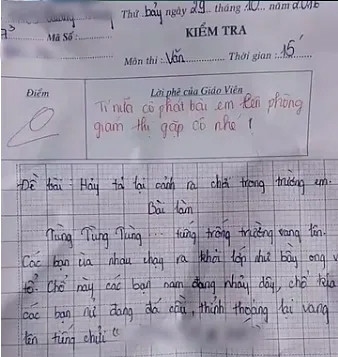 Thứ bảy ngày 29 tháng 10 năm 2016
Mã Số:
KIỂM TRA
Môn thi: Văn Thời gian: 15'
Điểm
Lời phê của Giáo Viên
Tí nữa cô phát bài em lên phòng
giam thị gặp cô nhé !
Đề bài: Hãy tả lại cảnh ra chơi trong trường em.
Bài làm
Tùng Tùng Tùng ... tiếng trống trường vang lên.
Các bạn ùa nhau chạy ra khỏi lớp như bầy ong vỡ
tổ. Chỗ này các bạn nam đang nhảy dây, chỗ kia
các bạn nữ đang đá cầu, thỉnh thoảng lại vang
lên tiếng chửi "